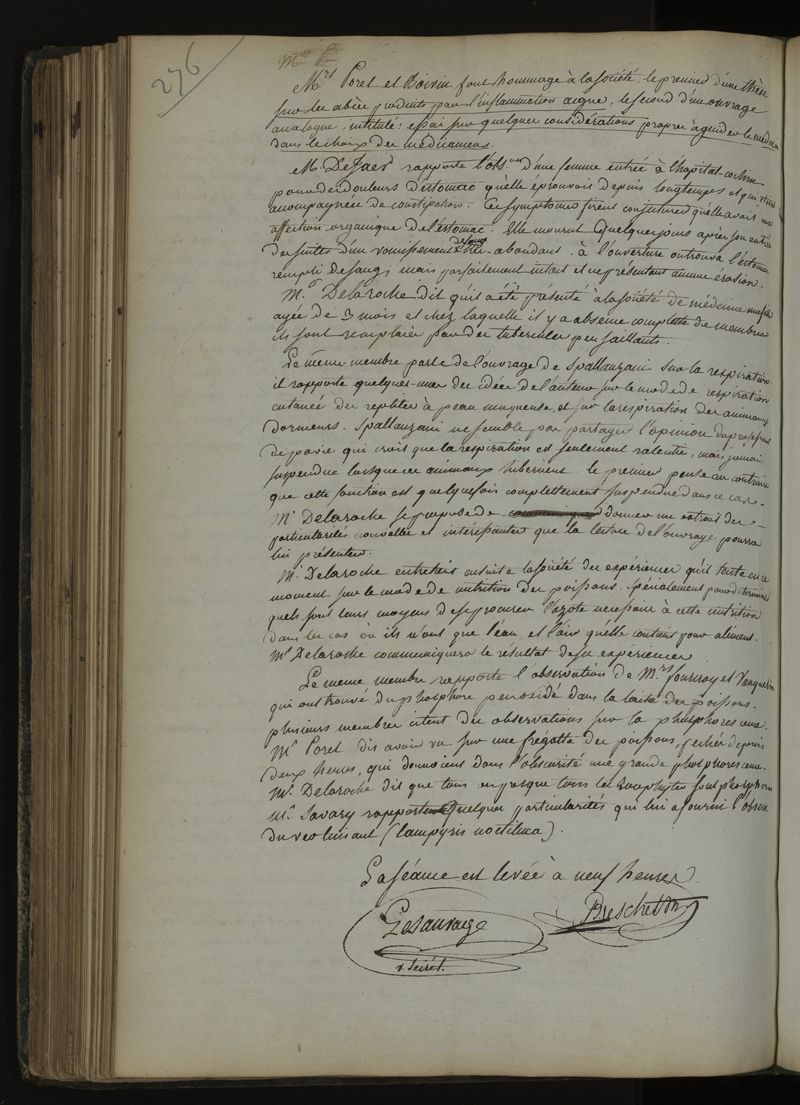 276
Mrs Poret et Boivin font hommage à la société, le premier d'une thèse
sur les abcès produits par l'inflammation aigue, le second d'un ouvrage
analogue, intitulé: essai sur quelques considérations propres à guider le médecin
dans le choix des médicamens.
M. DeJaer rapporte l'obson d'une femme entrée à l'hopital cochin
pour des douleurs d'estomac qu'elle éprouvoit depuis longtemps et qui étoient
accompagnées de constipation. Ces symptomes firent conjecturer qu'elle avoit une
affection organique de l'estomac. Elle mourut quelques jours après son entrée
des suites d'un vomissement de sang abondant. à l'ouverture on trouva l'estomac
rempli de sang, mais parfaitement intact et ne présentant aucune érosion.
Mr Delaroche dit qu'il a été présenté à la société de médecine une fille
agée de 3 mois et chez laquelle il y a absence complette de membres
ils sont remplacés par des tubercules peu saillants.
Le même membre parle de l'ouvrage de Spallanzani sur la respiration.
il rapporte quelques-unes des idées de l'auteur sur le mode de respiration
cutanée des reptiles à peau muqueuse, et sur la respiration des animaux
dormeurs. Spallanzani ne semble pas partager l'opinion du professeur
de pavie qui croit que la respiration est seulement ralentie, mais jamais
suspendue lorsque ces animaux hibernent. le premier pense au contraire
que cette fonction est quelquefois complettement suspendue dans ce cas.
Mr Delaroche se propose de donner un extrait des
particularités nouvelles et intéressantes que la lecture de l'ouvrage pourra
lui présenter.
Mr Delaroche entretient ensuite la société des expériences qu'il tente en ce
moment sur le mode de nutrition des poissons. spécialement pour déterminer
quels sont leurs moyens de se procurer l'azote nécessaire à cette nutrition
dans les cas où ils n'ont que l'eau et l'air qu'elle contient pour aliment.
Mr Delaroche communiquera le résultat de ses expériences
Le meme membre rapporte l'observation de Mrs fourcroy et Vauquelin
qui ont trouvé du phosphore peroxidé dans la laite des poissons.
plusieurs membres citent des observations sur la phosphorescence.
Mr Poret dit avoir vu sur une frégatte des poissons, pechés depuis
deux heures, qui donnoient dans l'obscurité une grande phosphorescence.
Mr. Delaroche dit que tous ou presque tous les zoophytes sont phosphores
Mr. Savary rapporte quelques particularités qui lui a fourni l'observ
du ver luisant (lampyris noctiluca).
La séance est levée à neuf heures.
Lesauvage
Breschet
v. secrét.